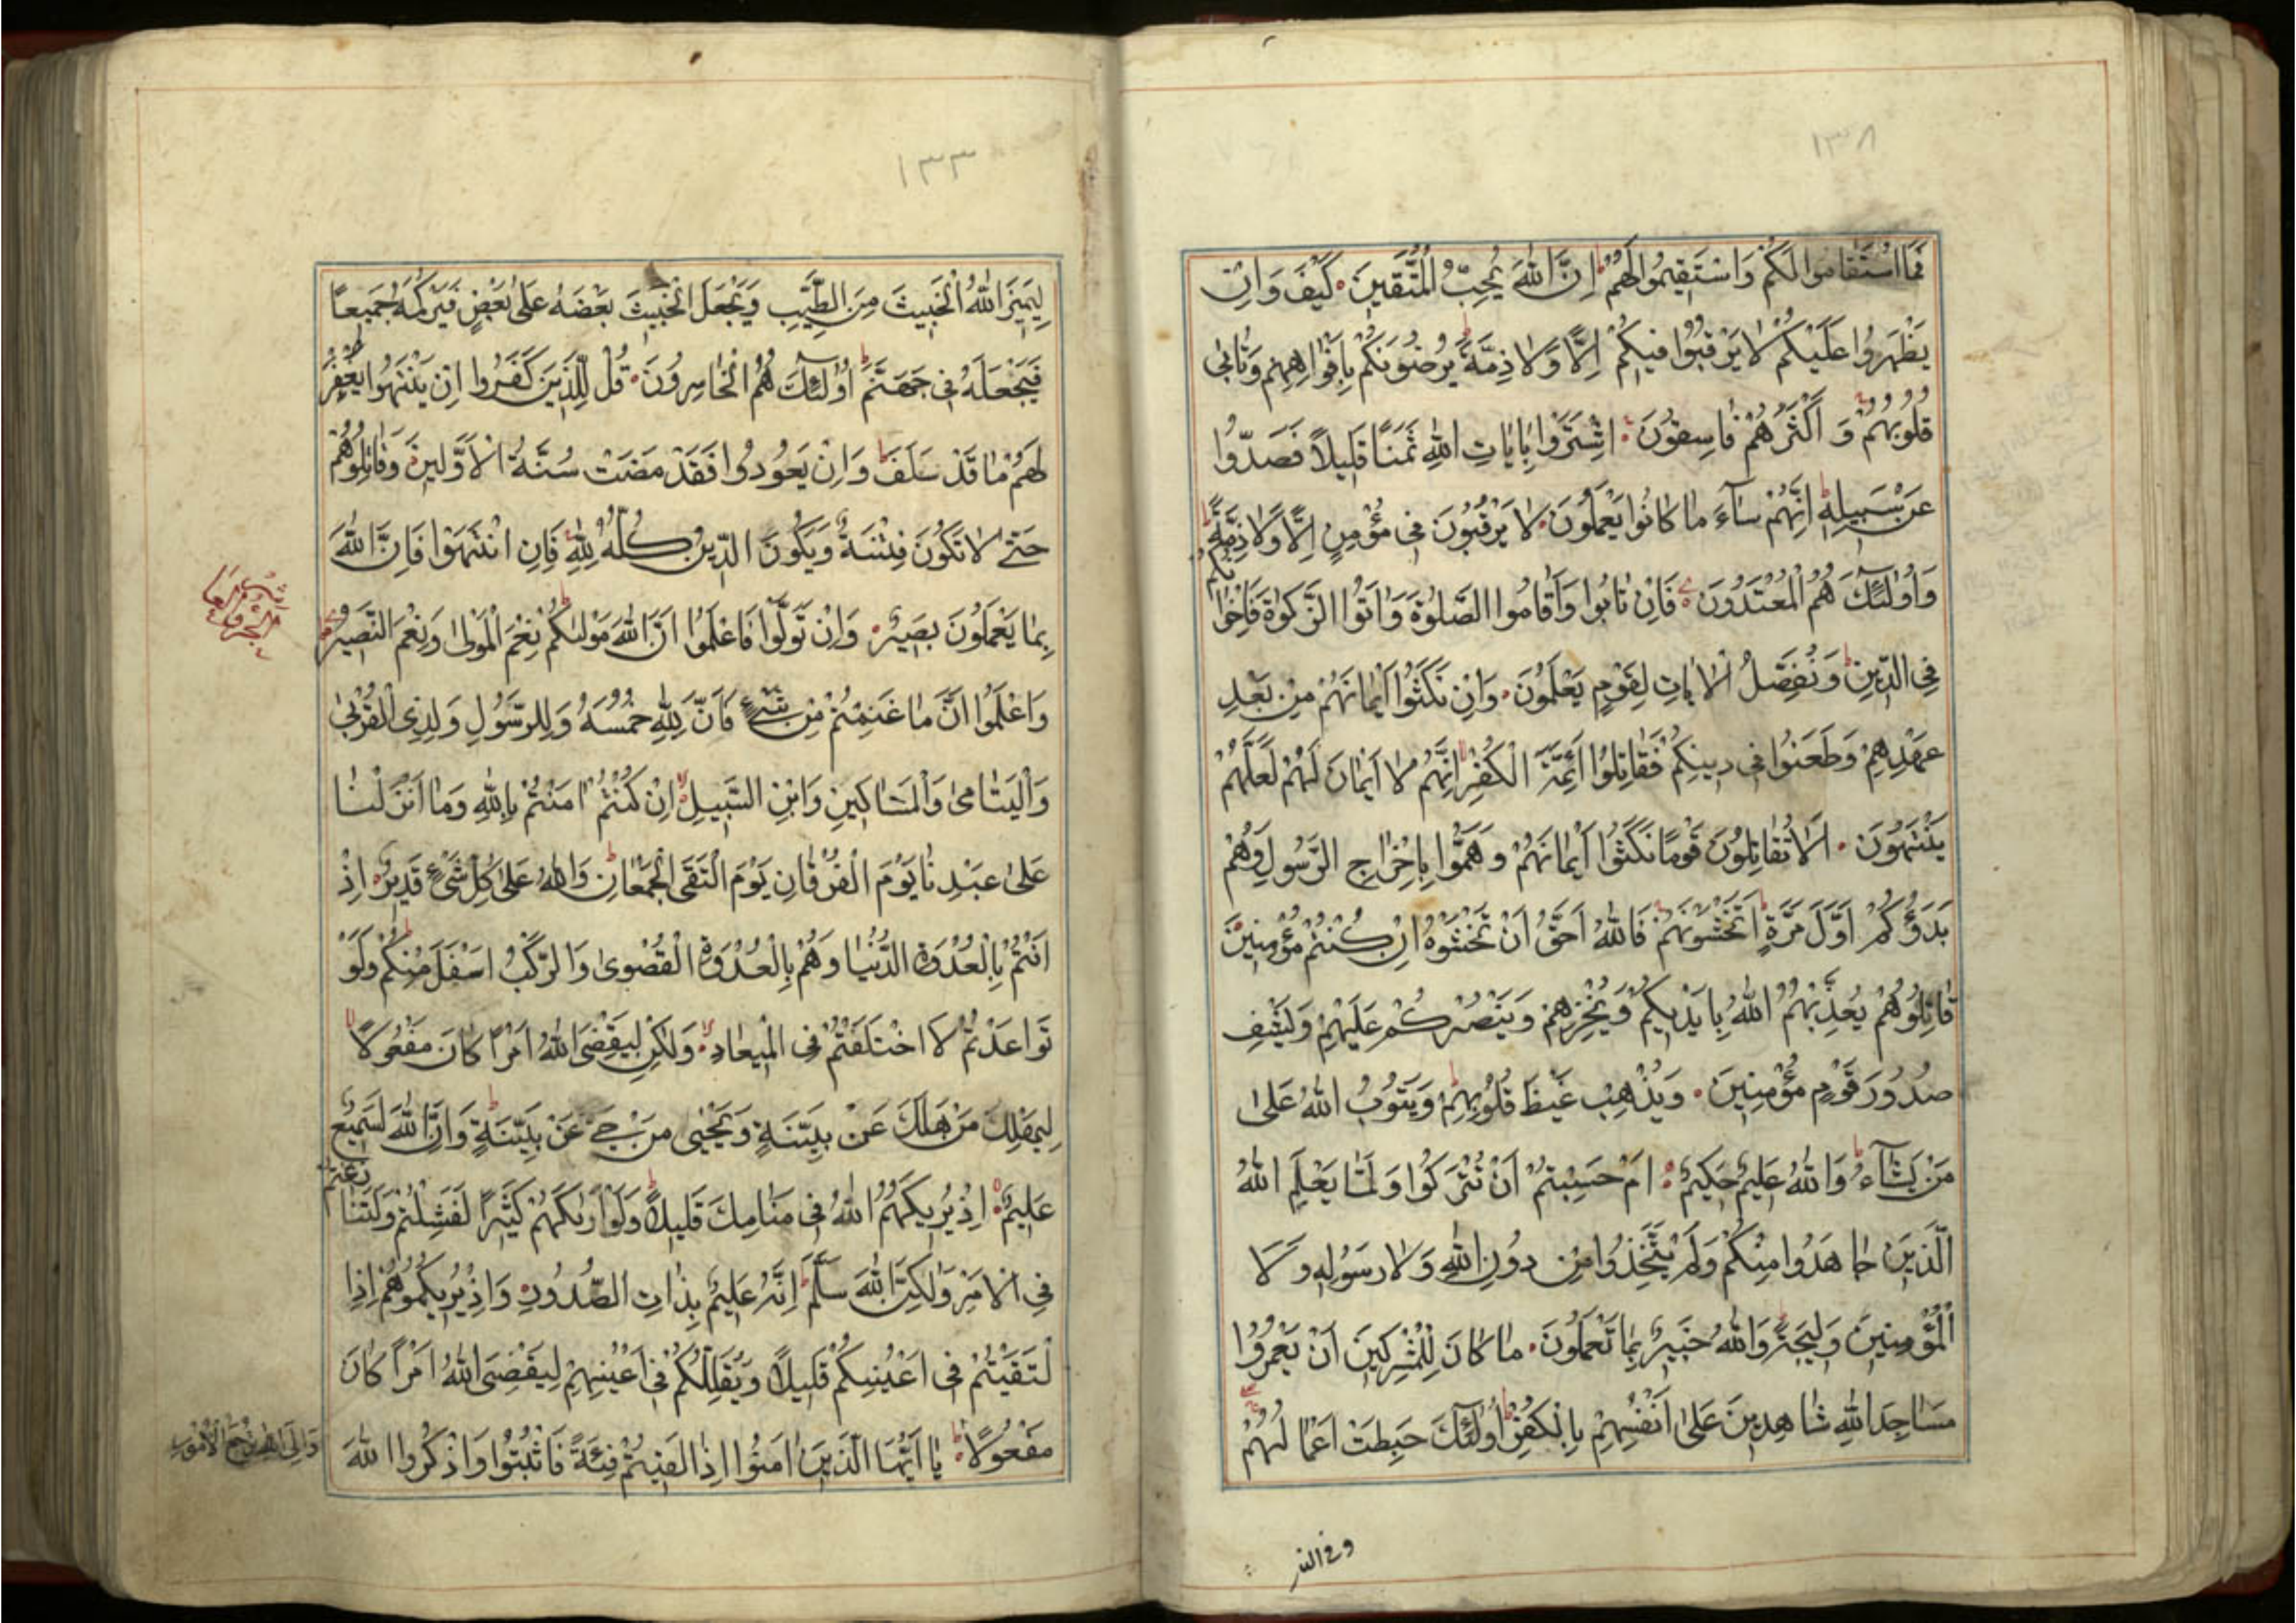 ١٣٨
فَمَا اسْتَقَامُوا لَكُمْ وَاسْتَقِيمُوا لَهُمْ اِنَّ اللّٰهَ يُحِبُّ الْمُتَّقِينَ كَيْفَ وَاِنْ
يَظْهَرُوا عَلَيْكُمْ لَا يَرْقُبُوا فِيكُمْ اِلًّا وَلَا ذِمَّةً يُرْضُونَكُمْ بِاَفْوَاهِهِمْ وَتَاْبٰى
قُلُوبُهُمْ وَ اَكْثَرُهُمْ فَاسِقُونَ اِشْتَرَوْا بِاٰيَاتِ اللّٰهِ ثَمَنًا قَلِيلًا فَصَدُّوا
عَنْ سَبِيلِهٖ اِنَّهُمْ سَآءَ مَا كَانُوا يَعْمَلُونَ لَا يَرْقُبُونَ فِى مُؤْمِنٍ اِلًّا وَلَا ذِمَّةً
وَاُولٰئِكَ هُمُ الْمُعْتَدُونَ فَاِنْ تَابُوا وَاَقَامُوا الصَّلٰوةَ وَاٰتَوُا الزَّكٰوةَ فَاِخْوَانُكُمْ
فِى الدِّينِ وَنُفَصِّلُ الْاٰيَاتِ لِقَوْمٍ يَعْلَمُونَ وَاِنْ نَكَثُوا اَيْمَانَهُمْ مِنْ بَعْدِ
عَهْدِهِمْ وَطَعَنُوا فِى دِينِكُمْ فَقَاتِلُوا اَئِمَّةَ الْكُفْرِ اِنَّهُمْ لَا اَيْمَانَ لَهُمْ لَعَلَّهُمْ
يَنْتَهُونَ اَلَا تُقَاتِلُونَ قَوْمًا نَكَثُوا اَيْمَانَهُمْ وَهَمُّوا بِاِخْرَاجِ الرَّسُولِ وَهُمْ
بَدَؤُكُمْ اَوَّلَ مَرَّةٍ اَتَخْشَوْنَهُمْ فَاللّٰهُ اَحَقُّ اَنْ تَخْشَوْهُ اِنْ كُنْتُمْ مُؤْمِنِينَ
قَاتِلُوهُمْ يُعَذِّبْهُمُ اللّٰهُ بِاَيْدِيكُمْ وَيُخْزِهِمْ وَيَنْصُرْكُمْ عَلَيْهِمْ وَيَشْفِ
صُدُورَ قَوْمٍ مُؤْمِنِينَ وَيُذْهِبْ غَيْظَ قُلُوبِهِمْ وَيَتُوبُ اللّٰهُ عَلٰى
مَنْ يَشَآءُ وَاللّٰهُ عَلِيمٌ حَكِيمٌ اَمْ حَسِبْتُمْ اَنْ تُتْرَكُوا وَلَمَّا يَعْلَمِ اللّٰهُ
الَّذِينَ جَاهَدُوا مِنْكُمْ وَلَمْ يَتَّخِذُوا مِنْ دُونِ اللّٰهِ وَلَا رَسُولِهٖ وَلَا
الْمُؤْمِنِينَ وَلِيجَةً وَاللّٰهُ خَبِيرٌ بِمَا تَعْمَلُونَ مَا كَانَ لِلْمُشْرِكِينَ اَنْ يَعْمُرُوا
مَسَاجِدَ اللّٰهِ شَاهِدِينَ عَلٰى اَنْفُسِهِمْ بِالْكُفْرِ اُولٰئِكَ حَبِطَتْ اَعْمَالُهُمْ
وفى النار
١٣٣
لِيَمِيزَ اللّٰهُ الْخَبِيثَ مِنَ الطَّيِّبِ وَيَجْعَلَ الْخَبِيثَ بَعْضَهُ عَلٰى بَعْضٍ فَيَرْكُمَهُ جَمِيعًا
فَيَجْعَلَهُ فِى جَهَنَّمَ اُولٰئِكَ هُمُ الْخَاسِرُونَ قُلْ لِلَّذِينَ كَفَرُوا اِنْ يَنْتَهُوا يُغْفَرْ
لَهُمْ مَا قَدْ سَلَفَ وَاِنْ يَعُودُوا فَقَدْ مَضَتْ سُنَّةُ الْاَوَّلِينَ وَقَاتِلُوهُمْ
حَتّٰى لَا تَكُونَ فِتْنَةٌ وَيَكُونَ الدِّينُ كُلُّهُ لِلّٰهِ فَاِنِ انْتَهَوْا فَاِنَّ اللّٰهَ
بِمَا يَعْمَلُونَ بَصِيرٌ وَاِنْ تَوَلَّوْا فَاعْلَمُوا اَنَّ اللّٰهَ مَوْلٰيكُمْ نِعْمَ الْمَوْلٰى وَنِعْمَ النَّصِيرُ
وَاعْلَمُوا اَنَّمَا غَنِمْتُمْ مِنْ شَىْءٍ فَاَنَّ لِلّٰهِ خُمُسَهُ وَلِلرَّسُولِ وَلِذِى الْقُرْبٰى
وَالْيَتَامٰى وَالْمَسَاكِينِ وَابْنِ السَّبِيلِ اِنْ كُنْتُمْ اٰمَنْتُمْ بِاللّٰهِ وَمَا اَنْزَلْنَا
عَلٰى عَبْدِنَا يَوْمَ الْفُرْقَانِ يَوْمَ الْتَقَى الْجَمْعَانِ وَاللّٰهُ عَلٰى كُلِّ شَىْءٍ قَدِيرٌ اِذْ
اَنْتُمْ بِالْعُدْوَةِ الدُّنْيَا وَهُمْ بِالْعُدْوَةِ الْقُصْوٰى وَالرَّكْبُ اَسْفَلَ مِنْكُمْ وَلَوْ
تَوَاعَدْتُمْ لَاخْتَلَفْتُمْ فِى الْمِيعَادِ وَلٰكِنْ لِيَقْضِىَ اللّٰهُ اَمْرًا كَانَ مَفْعُولًا
لِيَهْلِكَ مَنْ هَلَكَ عَنْ بَيِّنَةٍ وَيَحْيٰى مَنْ حَىَّ عَنْ بَيِّنَةٍ وَاِنَّ اللّٰهَ لَسَمِيعٌ
عَلِيمٌ اِذْ يُرِيكَهُمُ اللّٰهُ فِى مَنَامِكَ قَلِيلًا وَلَوْ اَرٰيكَهُمْ كَثِيرًا لَفَشِلْتُمْ وَلَتَنَازَعْتُمْ
فِى الْاَمْرِ وَلٰكِنَّ اللّٰهَ سَلَّمَ اِنَّهُ عَلِيمٌ بِذَاتِ الصُّدُورِ وَاِذْ يُرِيكُمُوهُمْ اِذِ
الْتَقَيْتُمْ فِى اَعْيُنِكُمْ قَلِيلًا وَيُقَلِّلُكُمْ فِى اَعْيُنِهِمْ لِيَقْضِىَ اللّٰهُ اَمْرًا كَانَ
مَفْعُولًا يَا اَيُّهَا الَّذِينَ اٰمَنُوا اِذَا لَقِيتُمْ فِئَةً فَاثْبُتُوا وَاذْكُرُوا اللّٰهَ
وَاِلَى اللّٰهِ تُرْجَعُ الْاُمُورُ